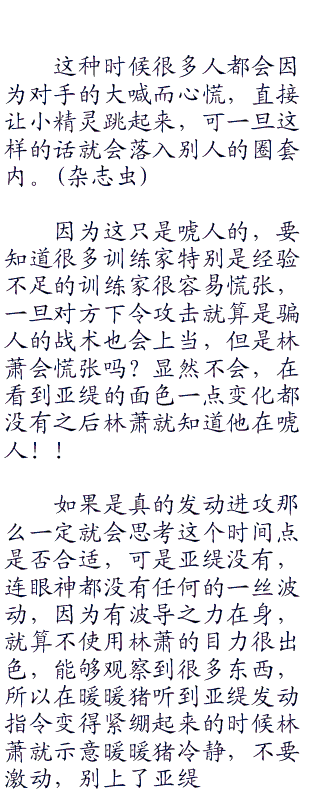 这种时候很多人都会因
为对手的大喊而心慌，直接
让小精灵跳起来，可一旦这
样的话就会落入别人的圈套
内。(杂志虫)
因为这只是唬人的，要
知道很多训练家特别是经验
不足的训练家很容易慌张，
一旦对方下令攻击就算是骗
人的战术也会上当，但是林
萧会慌张吗？显然不会，在
看到亚缇的面色一点变化都
没有之后林萧就知道他在唬
人！！
如果是真的发动进攻那
么一定就会思考这个时间点
是否合适，可是亚缇没有，
连眼神都没有任何的一丝波
动，因为有波导之力在身，
就算不使用林萧的目力很出
色，能够观察到很多东西，
所以在暖暖猪听到亚缇发动
指令变得紧绷起来的时候林
萧就示意暖暖猪冷静，不要
激动，别上了亚缇